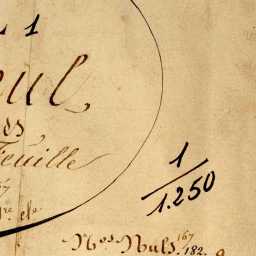 1
eul
es
Feuille
1
1.250
Nos Nuls 167
182.